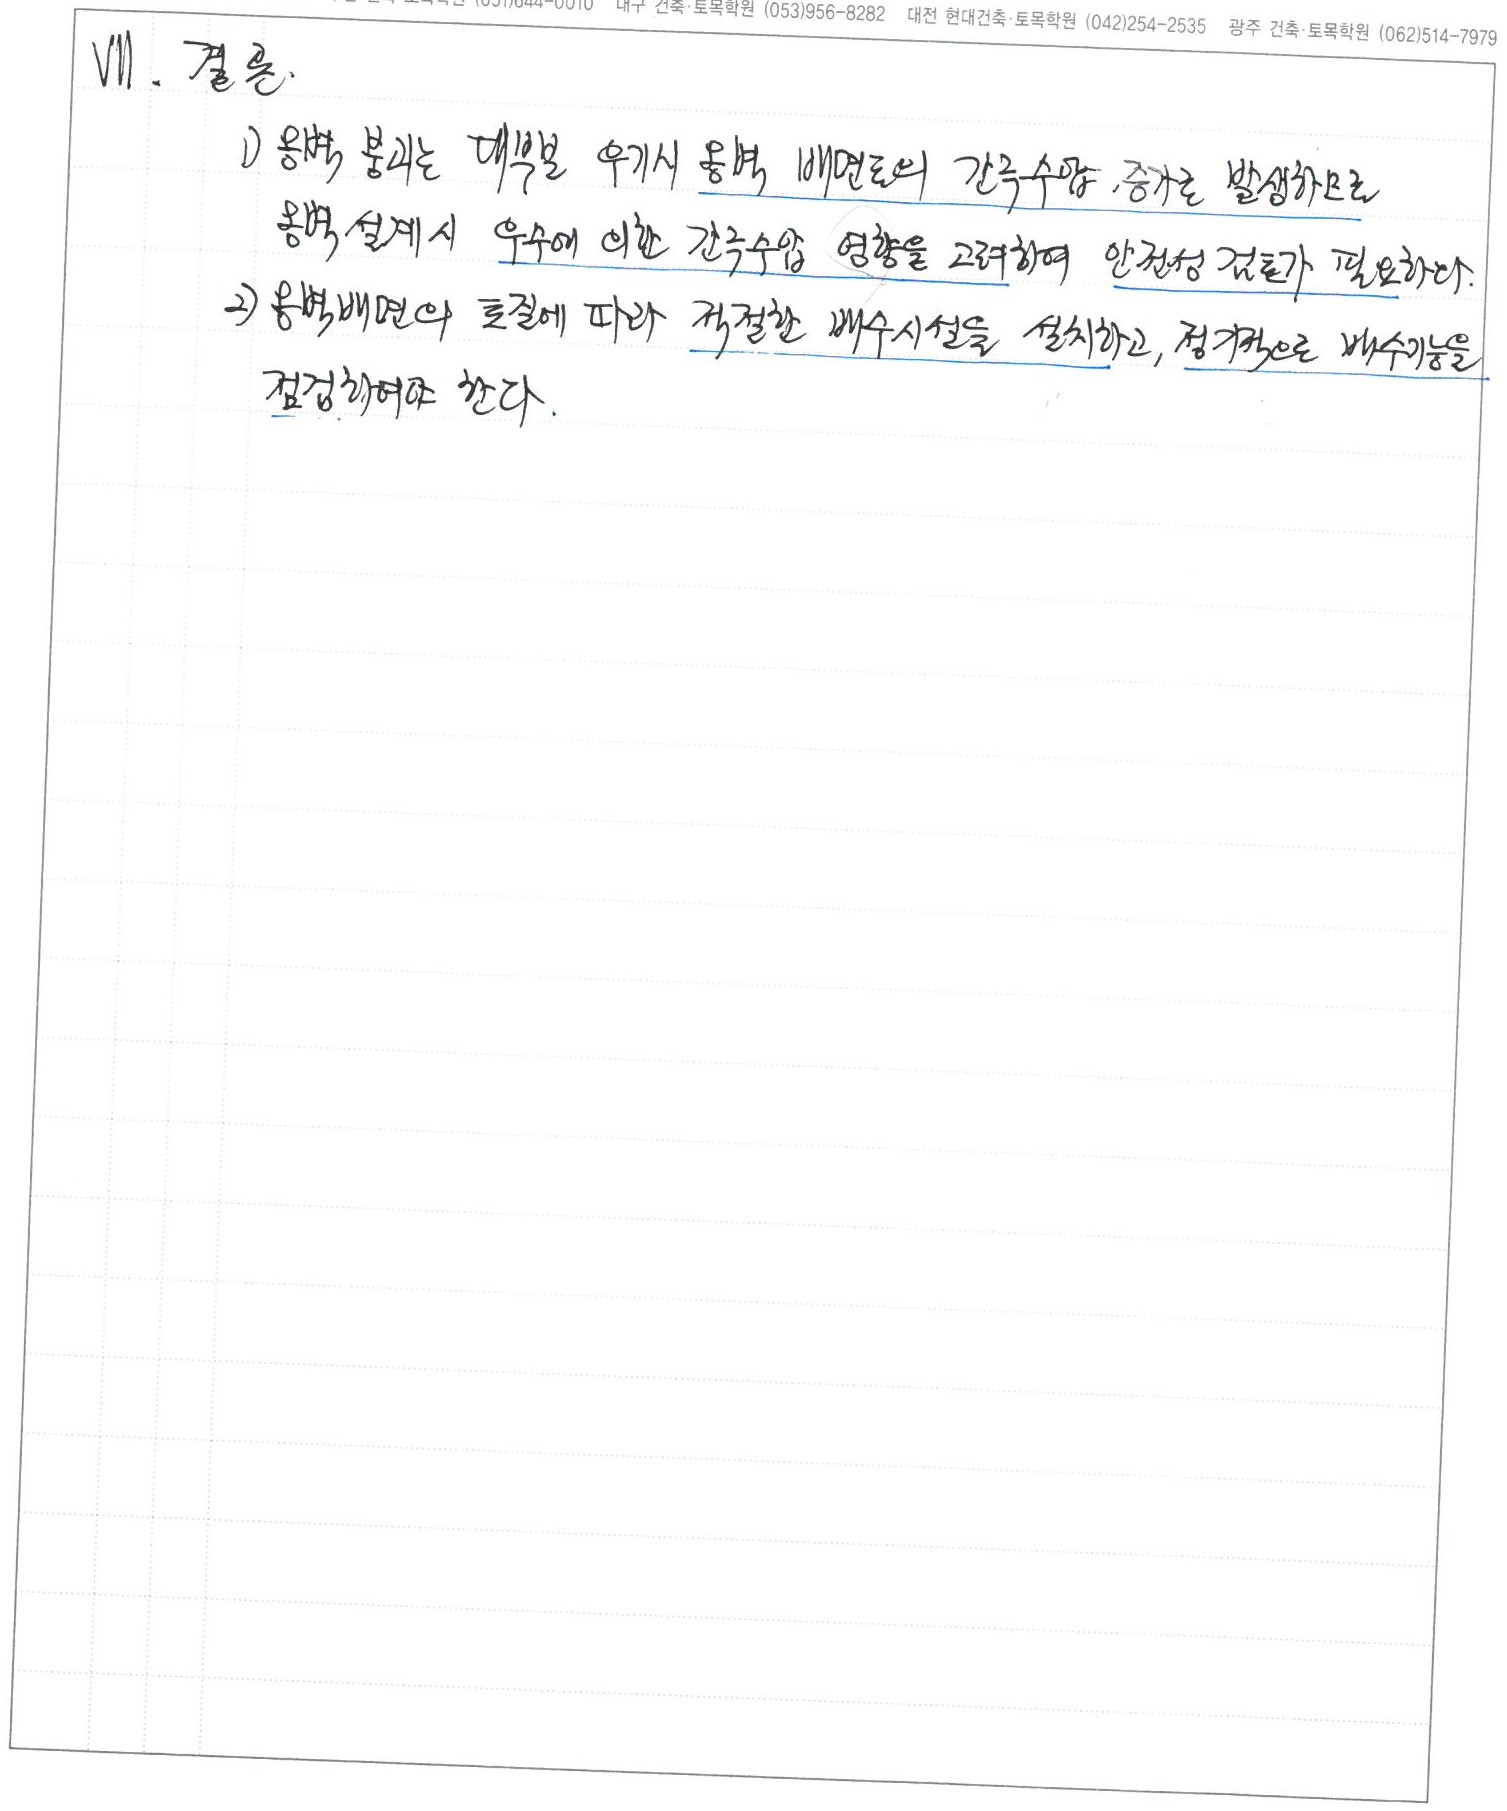 (051)644-0010 대구 건축·토목학원 (053)956-8282 대전 현대건축·토목학원 (042)254-2535 광주 건축·토목학원 (062)514-7979
Ⅶ. 결론.
1) 옹벽 붕괴는 대부분 우기시 옹벽 배면토의 간극수압 증가로 발생하므로
옹벽설계시 우수에 의한 간극수압 영향을 고려하여 안전성 검토가 필요하다.
2) 옹벽배면의 토질에 따라 적절한 배수시설을 설치하고, 정기적으로 배수기능을
점검하여야 한다.